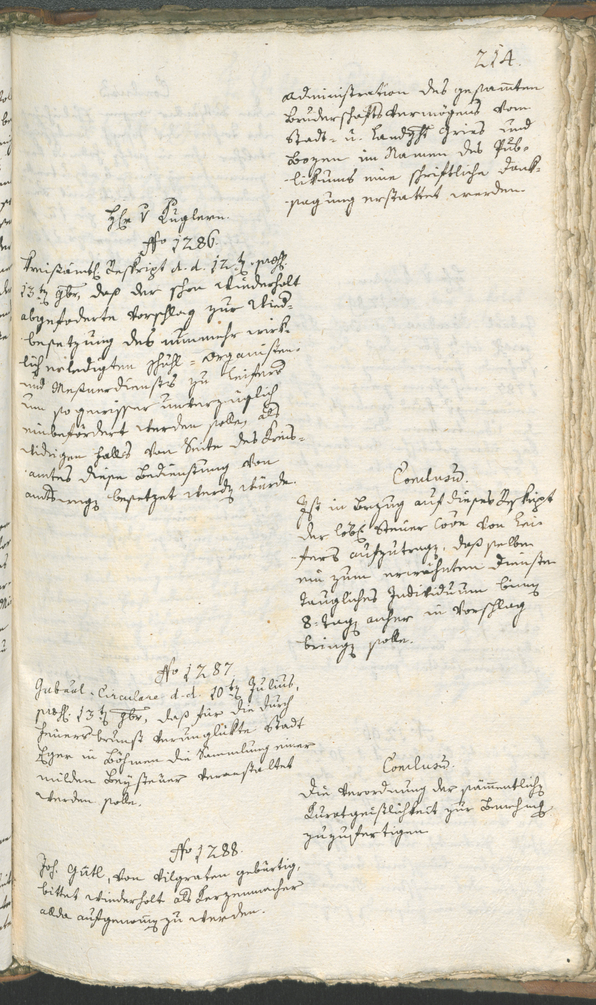 214.
Administration des gesamten
Bruderschaftsvermögens vom
Stadt- u. Landght Gries und
Bozen im Namen des Pub-
likums eine schriftliche Dank-
sagung erstattet werden.
Hr v Kuglern.
No 1286.
Kreisämtl Reskript d. d. 12t
13t, daß der schon wiederholt
abgeforderte Vorschlag zur Wied-
besetzung des nunmehr wirk-
lich erledigten Schull- Organisten-
und Meßnerdienstes zu Leifers
um so gewisser unverzüglich
einbefördert werden solle, als
widrigen falls von Seite des Kreis-
amtes diese Bedienstung von
amtswegen besetzet werdn würde.
Conclusū.
Ist in Bezug auf dieses Reskript
der löbl Steuer von Lei-
fers aufzutragn, daß selbe
ein zum erwähnten Diensten
taugliches Individuum binnen
8. Tagn anher in Vorschlag
bringen solle.
No 1287
Gubrnl-Circulare d. d. 10t Julius,
13t, daß für die durch
Feuersbrunst verunglükte Stadt
Eger in Böhmen die Sammlung einer
milden Beysteuer veranstaltet
werden solle.
Conclusū.
Die Verordnung der sämmentlichn
Kuratgeistlichkeit zur
zuzufertigen
No 1288.
Joh. Gütl, von Vilgraten gebürtig,
bittet wiederholt als Kerzenmacher
alda aufgenomn zu werden.